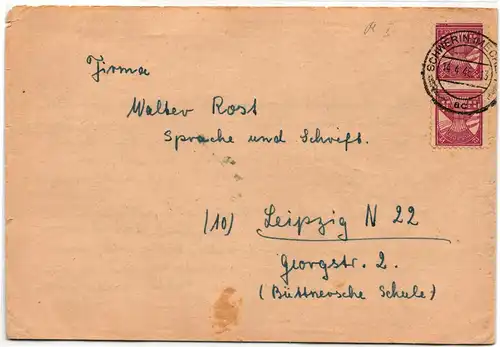 SCHWERIN (MECKL
14.4.46
ac
Firma
Walter Rost
Sprache und Schrift.
(10) Leipzig N 22
Georgstr. 2.
(Büttnersche Schule)